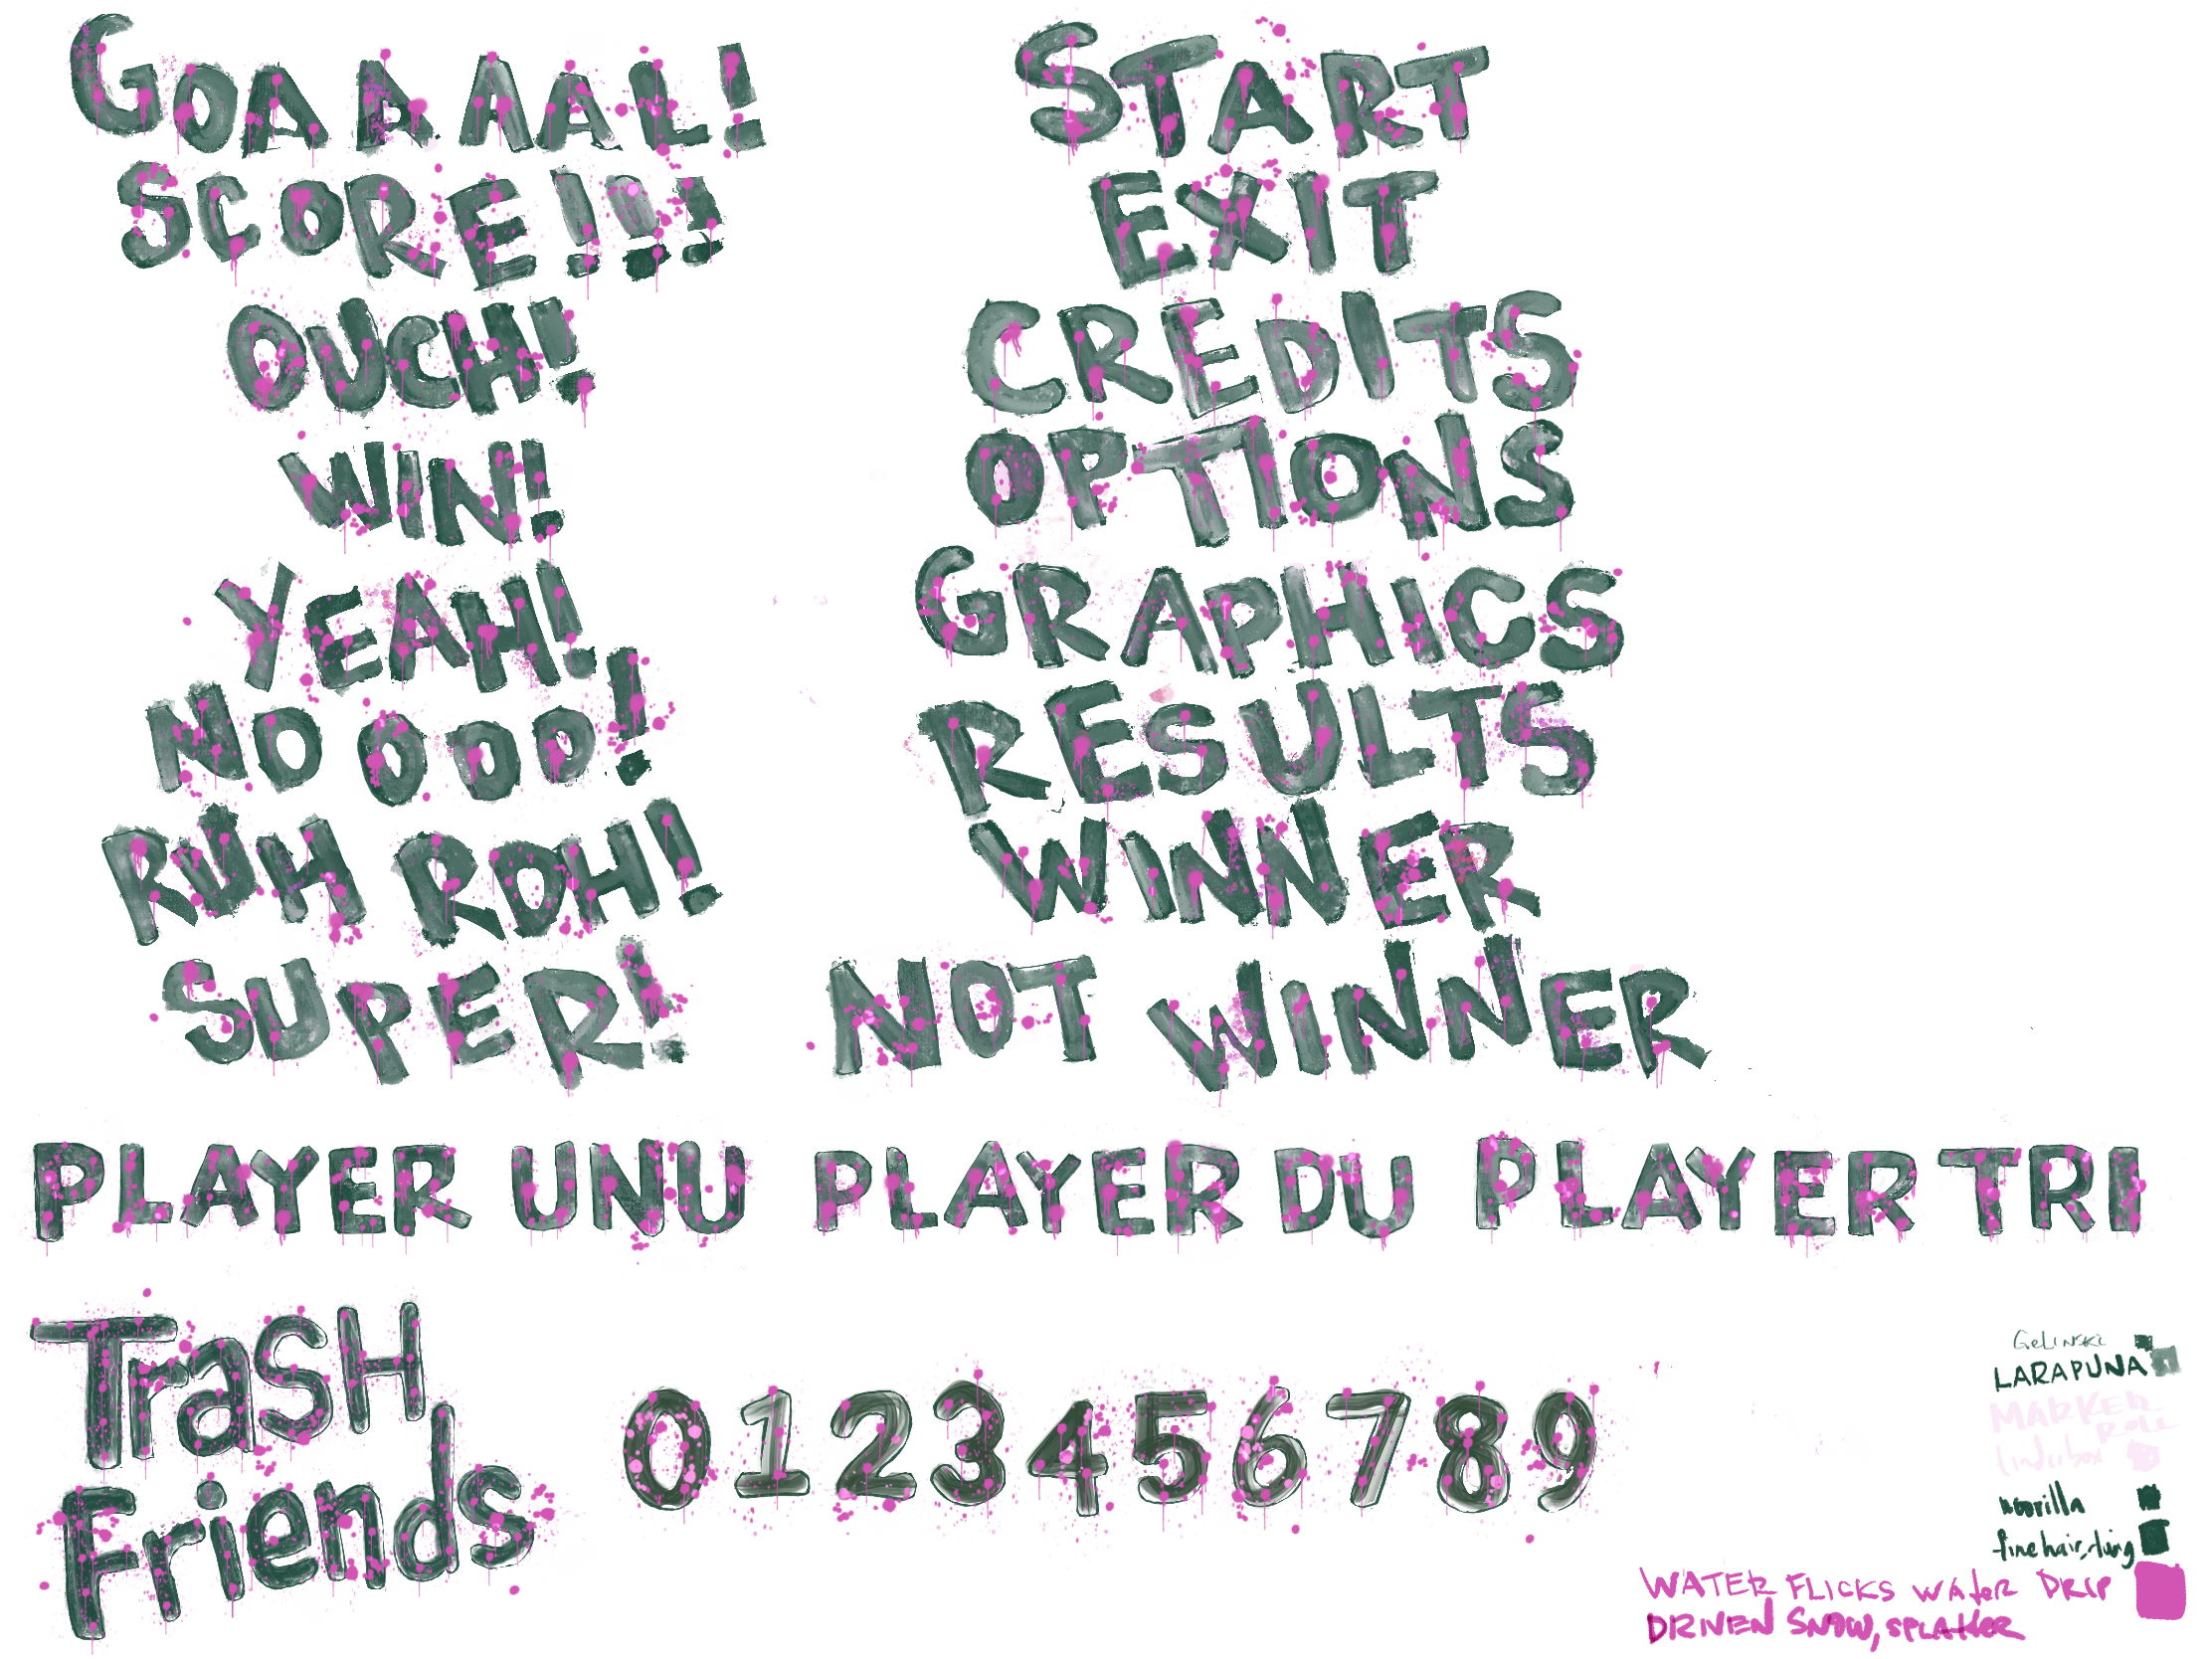 GOAAAAL!
SCORE!!!
OUCH!
WIN!
YEAH!
NOOOO!
RUH ROH!
SUPER!
START
EXIT
CREDITS
OPTIONS
GRAPHICS
RESULTS
WINNER
NOT WINNER
PLAYER UNU PLAYER DU PLAYER TRI
Trash
Friends
0123456789
GeLINSKi
LARAPUNA
MARKER
ROLL
WATER FLICKS WATER DRIP
DRIVEN SNOW, SPLATTER